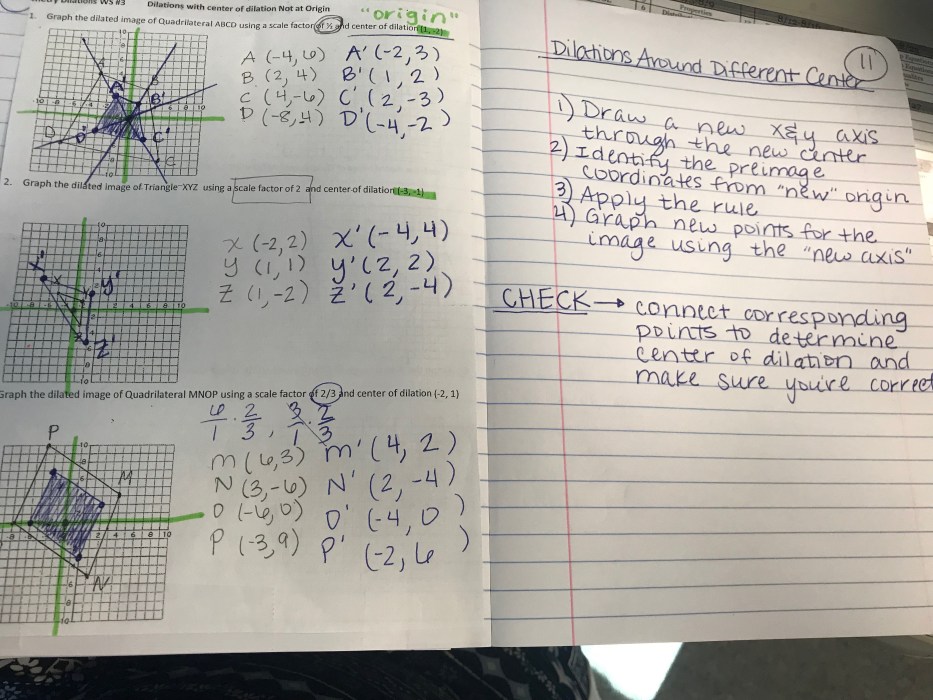 Dilations WS #3 Dilations with center of dilation Not at Origin
"origin"
1. Graph the dilated image of Quadrilateral ABCD using a scale factor of ½ and center of dilation (1, -2)
A (-4,6) A' (-2,3)
B (2,4) B' (1,2)
C (4,-6) C' (2,-3)
D (-8,-4) D' (-4,-2)
2. Graph the dilated image of Triangle XYZ using a scale factor of 2 and center of dilation (-3,-1)
X (-2,2) X' (-4,4)
Y (1,1) Y' (2,2)
Z (1,-2) Z' (2,-4)
Graph the dilated image of Quadrilateral MNOP using a scale factor of 2/3 and center of dilation (-2, 1)
6/1 · 2/3 , 3/1 · 2/3
M (6,3) M' (4,2)
N (3,-6) N' (2,-4)
O (-6,0) O' (-4,0)
P (-3,9) P' (-2,6)
11
Dilations Around Different Center
1) Draw a new x&y axis
through the new center
2) Identify the preimage
coordinates from "new" origin
3) Apply the rule
4) Graph new points for the
image using the "new axis"
CHECK → connect corresponding
points to determine
center of dilation and
make sure you're correct